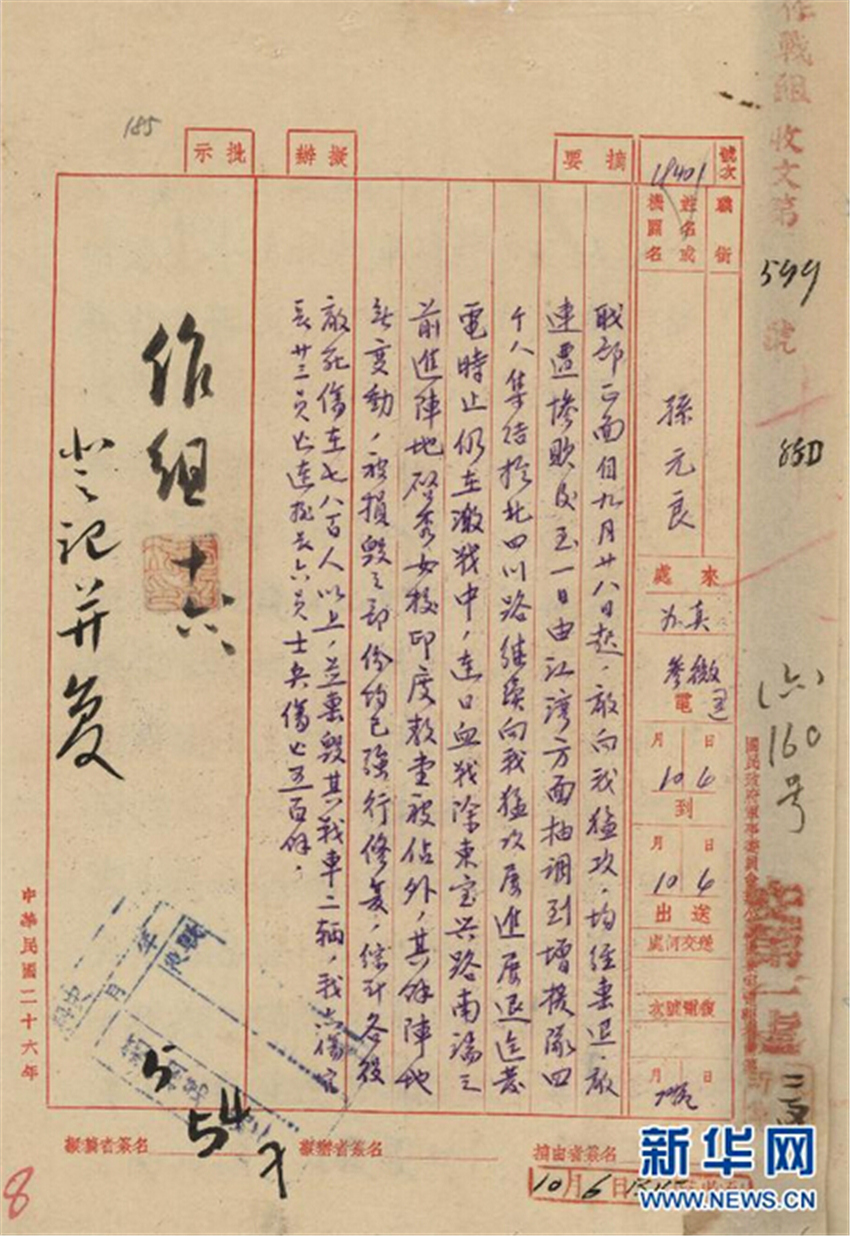 作戰組收文第
599
號
號次
1840
職銜
姓名或
機關名
孫元良
來處
電
月 日
10 6
到
月 日
10 6
送出
送交何處
復電號次
月 日
160号
摘要
職部正面自九月廿八日起，敵向我猛攻，均經擊退，敵
連遭慘敗後至一日由江灣方面抽調到增援隊四
千人集结於北四川路继续向我猛攻屡進屡退迄發
電時止仍在激战中，連日血战除東宝兴路南端之
前進陣地啓秀女校印度教堂被佔外，其餘陣地
無變動，被損毀之部份均已强行修复，綜計各役
敵死傷在七八百人以上，並燬毀其战車二輛，我亡傷官
長廿三員亡連排長六員士兵傷亡五百餘，
擬辦
批示
作组
十六
登记并复
185
中華民國二十六年
54
擬稿者簽名
擬辦者簽名
摘由者簽名
10月6日
8
新华网
WWW.NEWS.CN